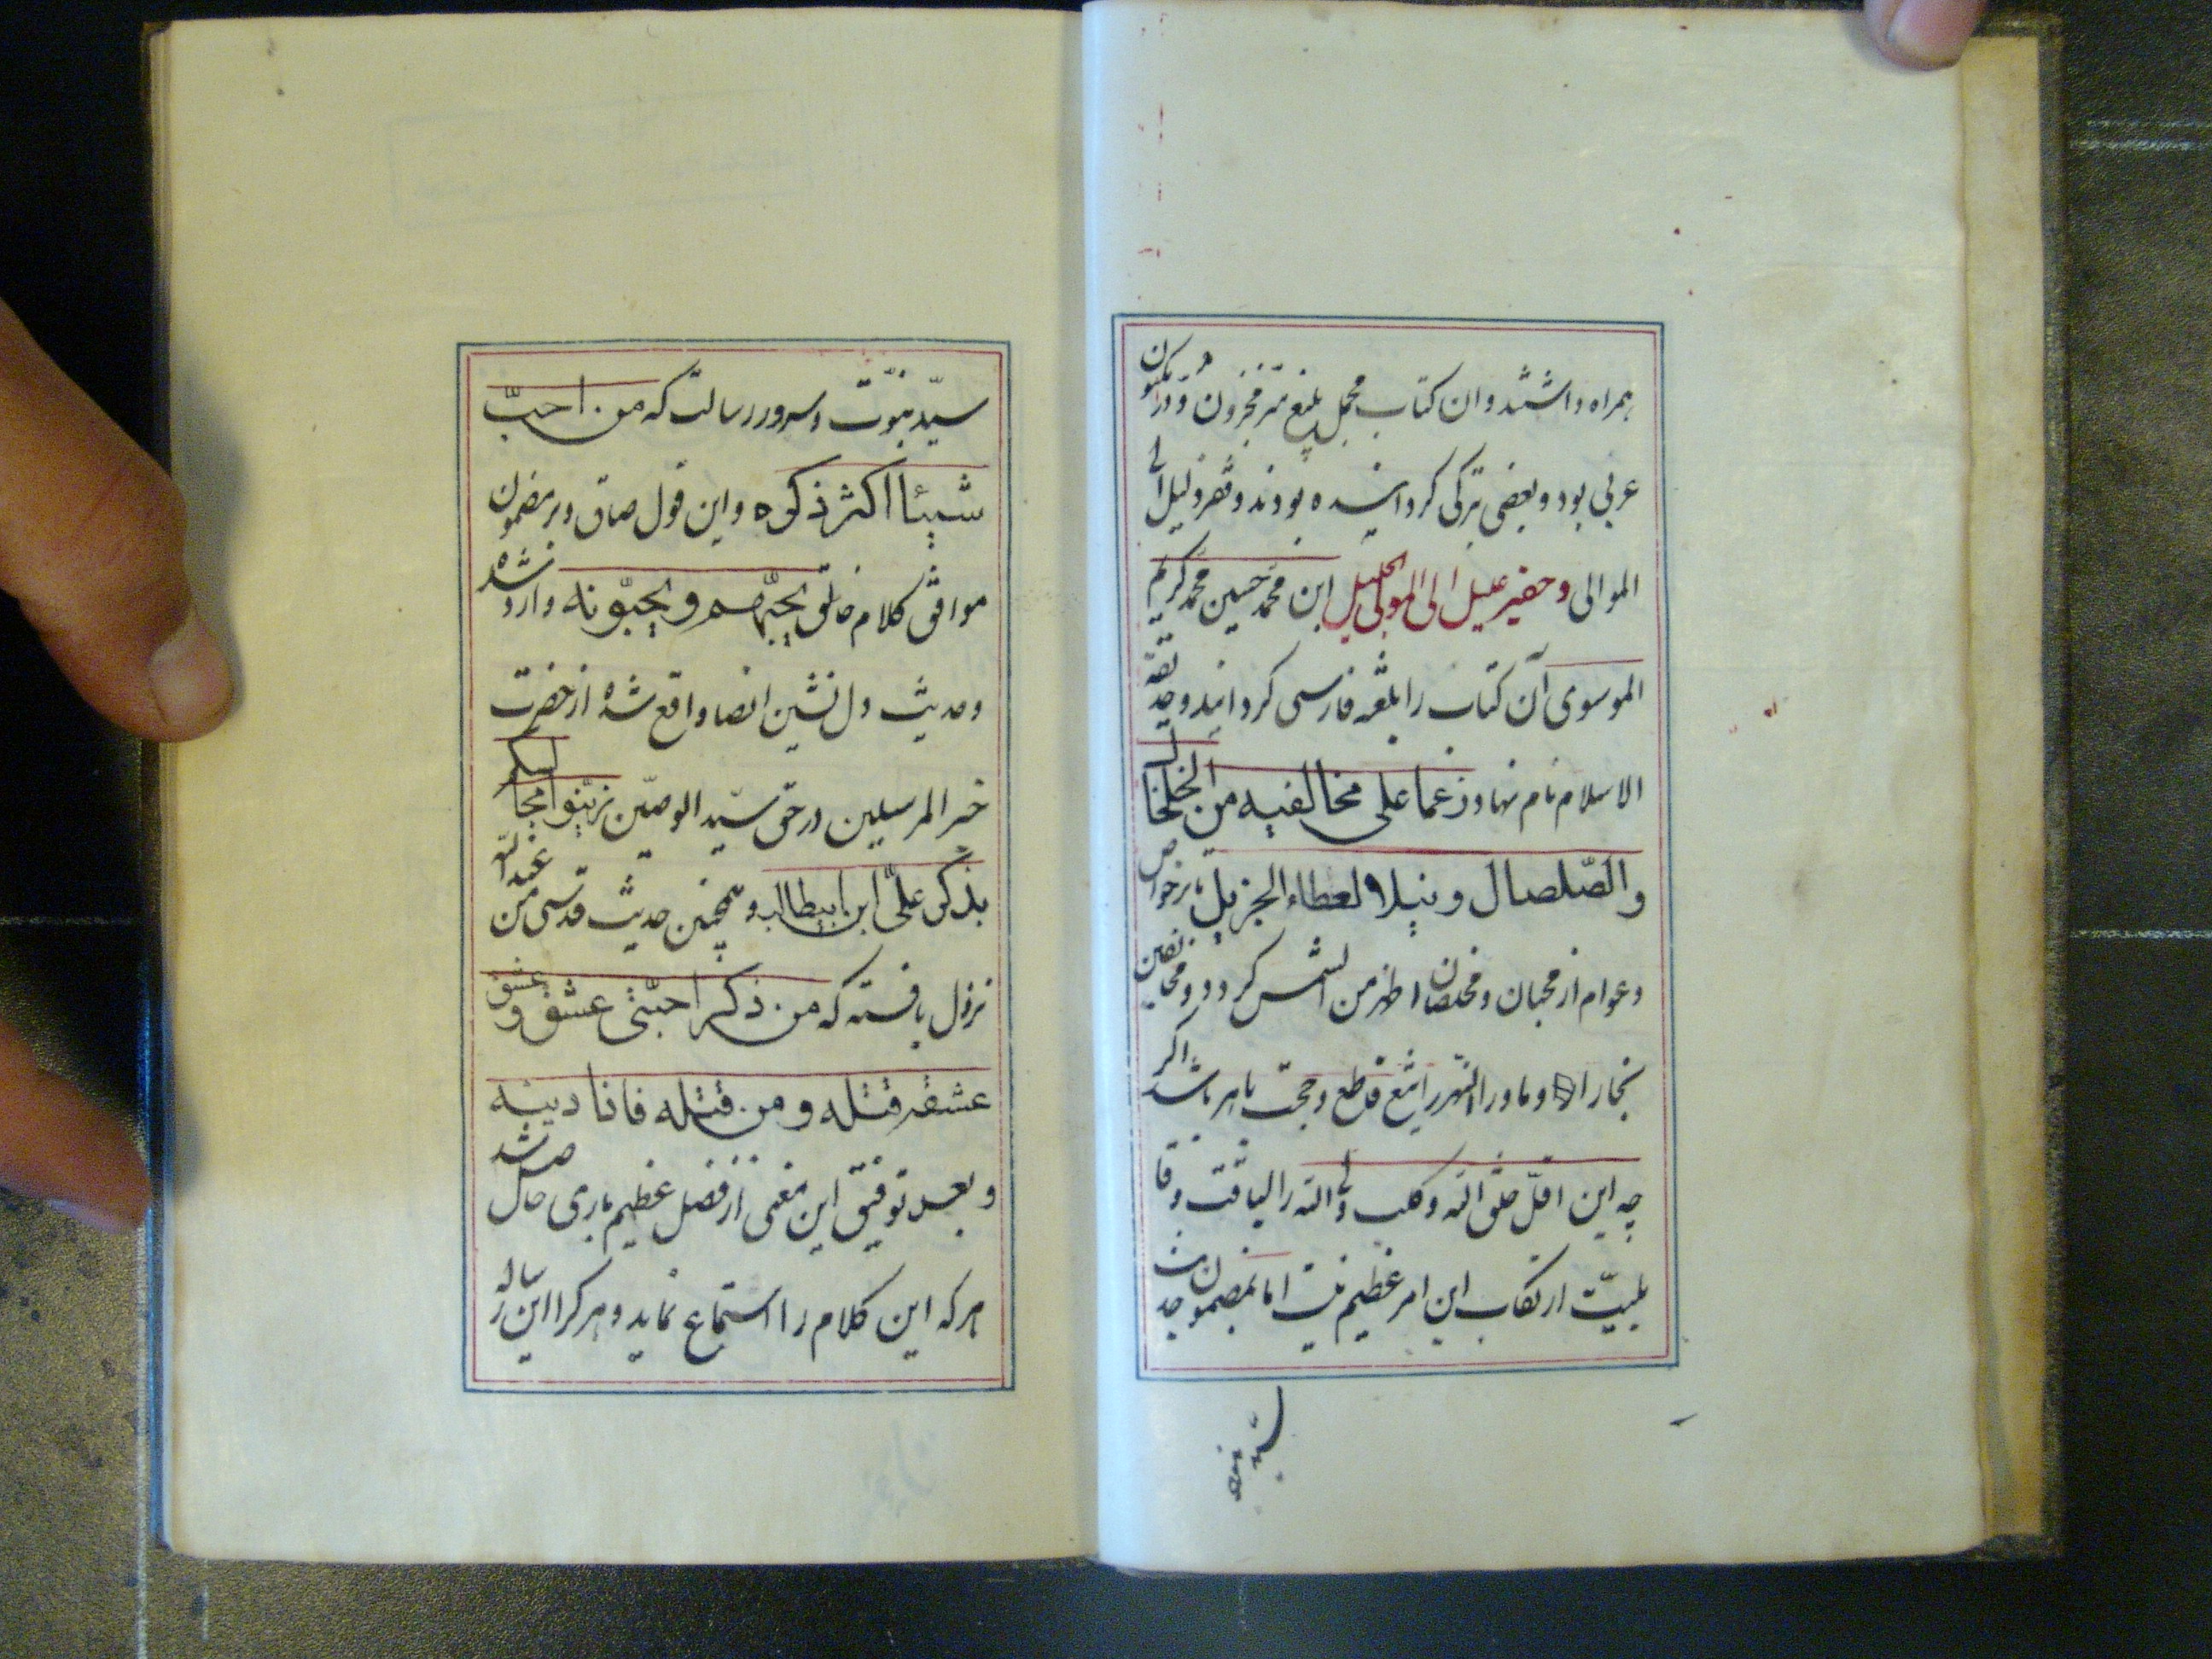 همراه داشتند وان کتاب مجمل بلیغ سر مخزون و در مکنون
عربی بود و بعضی ترکی کردانیده بودند وفقر ذلیل الی
الموالی و حقیر علیل الی المولی الجلیل ابن محمد حسین محمد کریم
الموسوی آن کتاب را بلغه فارسی کردانید و حدیقة
الاسلام نام نهاد زعما علی مخالفیه من الخلخال
والصّلصال و نیلا لعطاء الجزیل تا بر خواص
و عوام از محبان و مخلصان اظهر من الشمس کردد و مخالفین
بخارا و ماورا النهر را تیغ قاطع و حجت باهر باشد اکر
چه این اقلّ خلق الله و کلب ولی الله را لیاقت و قا
بلیّت ارتکاب این امر عظیم نیست اما بمضمون حدیث
سیّد نبوّت و سرور رسالت که من احبّ
شیئا اکثر ذکره و این قول صادق و بر مضمون
موافق کلام خالق یحبّهم و یحبّونه وارد شده
و حدیث دل نشین ایضا واقع شده از حضرت
خیر المرسلین در حق سیّد الوصیّین زیّنوا مجالسکم
بذکر علیّ ابن ابیطالب و همچنین حدیث قدسی من عند الله
نزول یافته که من ذکر احبّنی عشق و عشق
عشقه قتله و من قتله فانا دیته
و بعد توفیق این معنی از فضل عظیم باری حاصل شد
هر که این کلام را استماع نماید و هر کرا این رساله